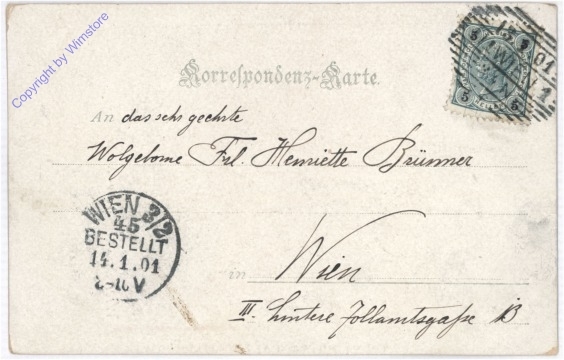 Copyright by Wimstore
Korrespondenz-Karte.
An das sehr geehrte
Wolgeborne Frl. Henriette Brünner
in Wien
III. hintere Zollamtsgaße 13
WIEN 3/2
45
BESTELLT
14.1.01
V
5 5
01
WIEN
5 5